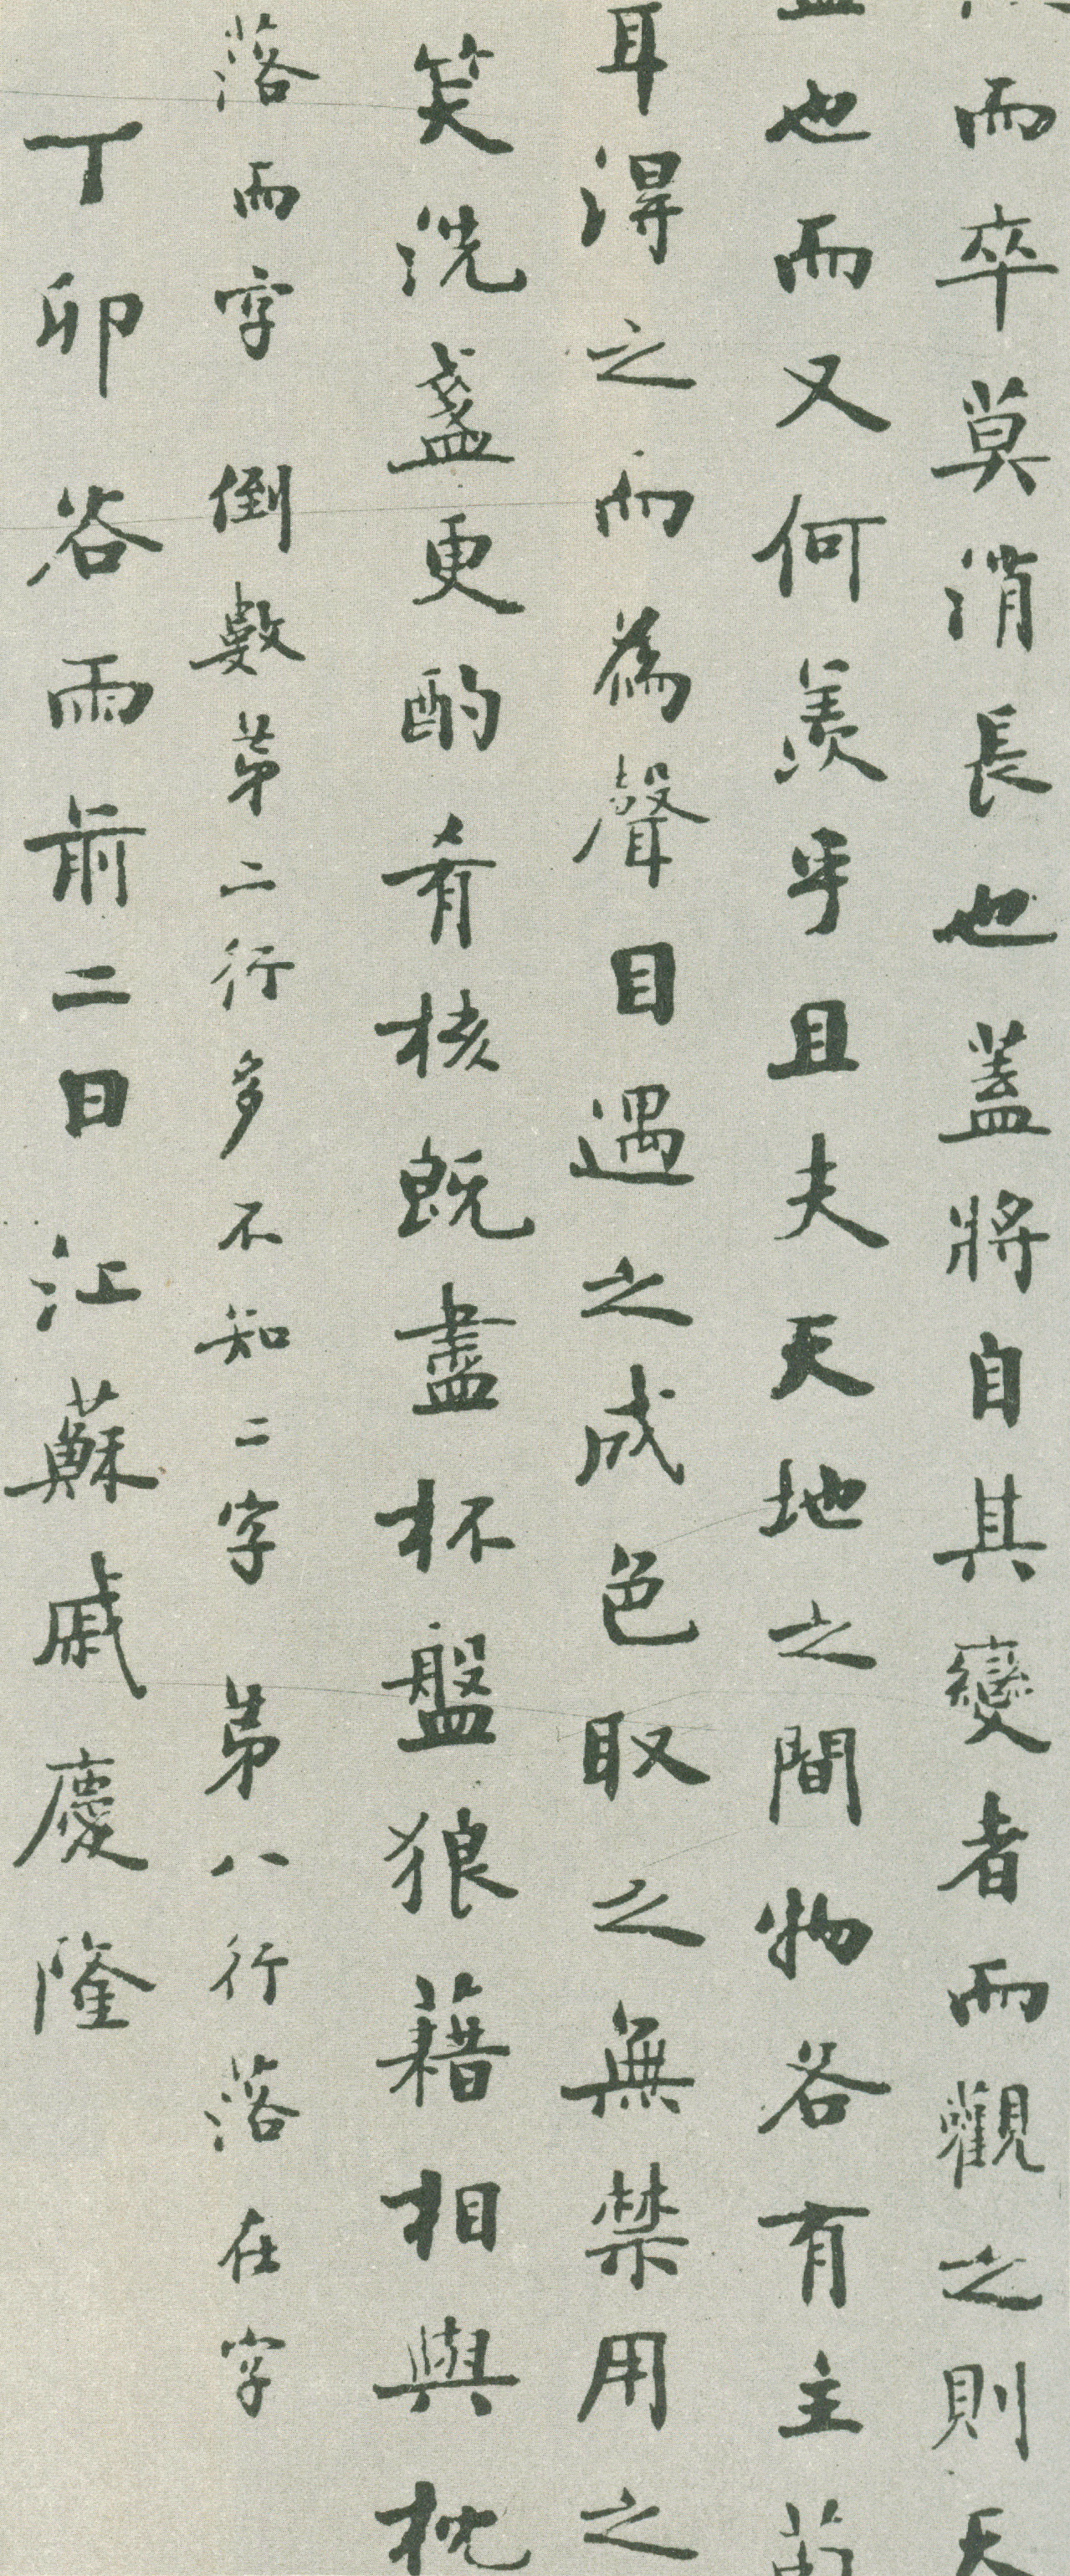 而卒莫消長也蓋將自其變者而觀之則天
也而又何羨乎且夫天地之間物各有主
耳得之而為聲目遇之成色取之無禁用之
笑洗盞更酌肴核既盡杯盤狼藉相與枕
落而字 倒數第二行多不知二字 第八行落在字
丁卯谷雨前二日江蘇戚慶隆